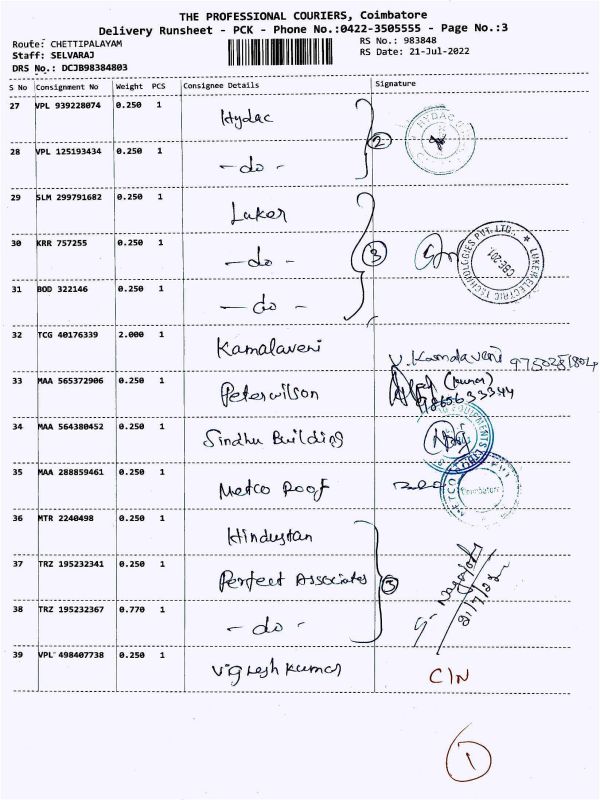 THE PROFESSIONAL COURIERS, Coimbatore
Delivery Runsheet - PCK - Phone No.:0422-3505555 - Page No.:3
Route: CHETTIPALAYAM
Staff: SELVARAJ
DRS No.: DCJB98384803
RS No.: 983848
RS Date: 21-Jul-2022
S No Consignment No Weight PCS Consignee Details Signature
27 VPL 939228074 0.250 1 Hydac
2 HYDAC
28 VPL 125193434 0.250 1 - do -
29 SLM 299791682 0.250 1 Luker
30 KRR 757255 0.250 1 - do - 3
LUKER ELECTRIC TECHNOLOGIES PVT. LTD.
CBE-201
31 BOD 322146 0.250 1 - do -
32 TCG 40176339 2.000 1 Kamalaveni V. Kamalaveni 9750281804
33 MAA 565372906 0.250 1 Peterwilson
34 MAA 564380452 0.250 1 Sindhu Building
35 MAA 288859461 0.250 1 Metco Roof METCO Coimbatore
36 MTR 2240498 0.250 1 Hindustan
37 TRZ 195232341 0.250 1 Perfect Associates
38 TRZ 195232367 0.770 1 - do -
21/7/22
39 VPL 498407738 0.250 1 Vignesh kumar C/N
1